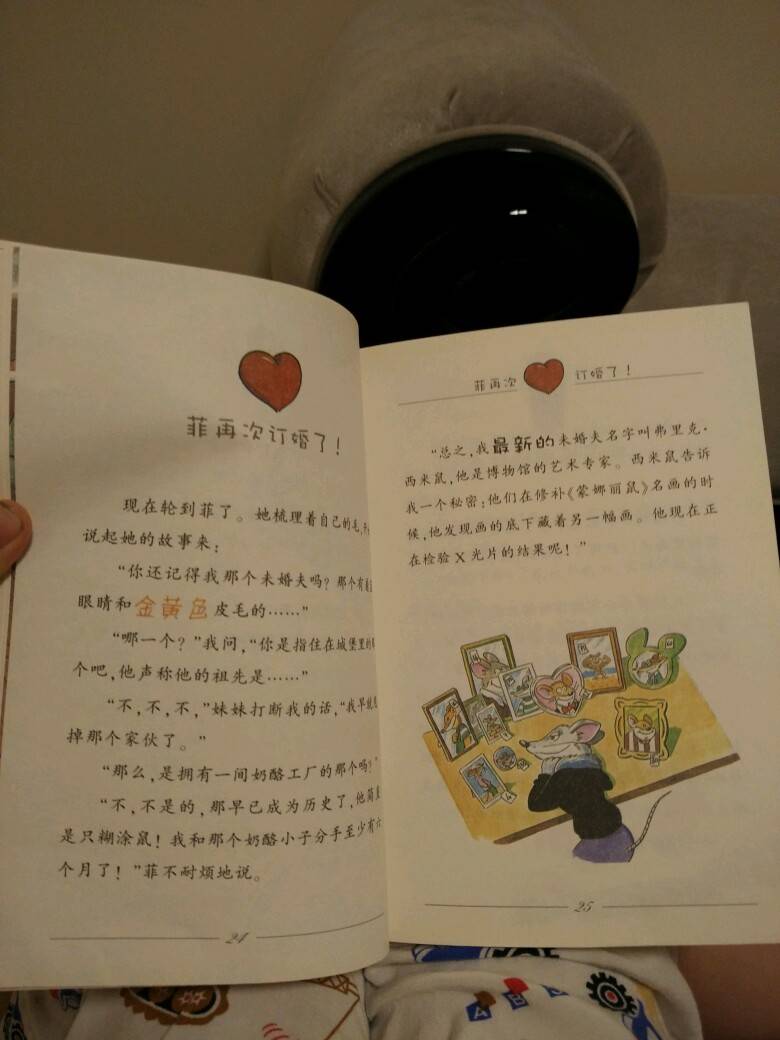 菲再次订婚了！
现在轮到菲了。她梳理着自己的毛，
说起她的故事来：
“你还记得我那个未婚夫吗？那个有着
眼睛和金黄色皮毛的……”
“哪一个？”我问，“你是指住在城堡里的
个吧，他声称他的祖先是……”
“不，不，不，”妹妹打断我的话，“我早就
掉那个家伙了。”
“那么，是拥有一间奶酪工厂的那个吗？”
“不，不是的，那早已成为历史了，他简直
是只糊涂鼠！我和那个奶酪小子分手至少有六
个月了！”菲不耐烦地说。
24
菲再次 订婚了！
“总之，我最新的未婚夫名字叫弗里克·
西米鼠，他是博物馆的艺术专家。西米鼠告诉
我一个秘密：他们在修补《蒙娜丽鼠》名画的时
候，他发现画的底下藏着另一幅画。他现在正
在检验X光片的结果呢！”
25
A
B